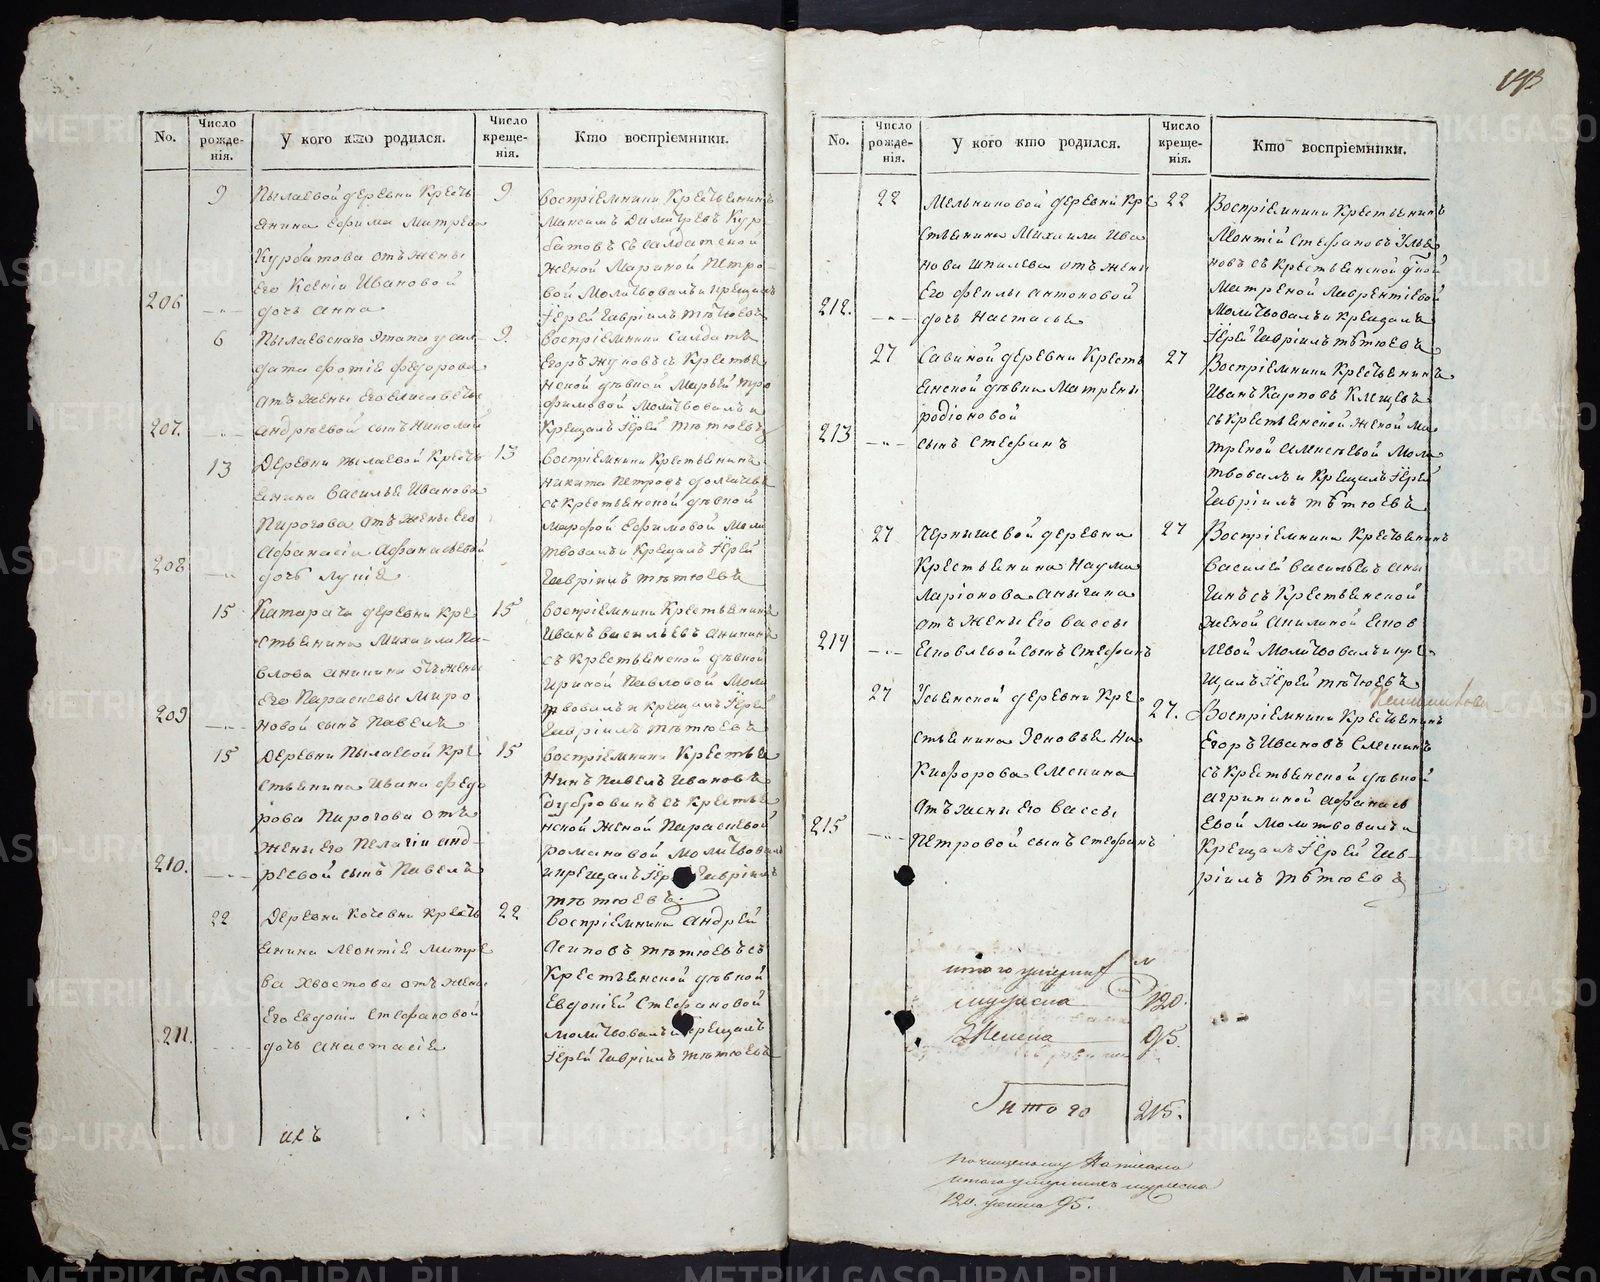 193
No. Число рожденія. У кого кто родился. Число крещенія. Кто воспріемники.
9 Пылаевой деревни Кресть 9
янина Ефима Митрева
Курбатова отъ жены
Его Ксеніи Ивановой
206 дочь Анна
воспріемники Крестьянинъ
Максимъ Димитревъ Кур
батовъ съ салдатской
женой Мариной Петро
вой Молитвовалъ и крещалъ
Іерей Гавріилъ Тѣтюевъ
6 Пылаевскаго Этапа у сал 9.
дата Фотіе Федорова
отъ жены его Елисаветы
207. Андрѣевой сынъ Николай
воспріемники Салдатъ
Егоръ Жуновъ съ Крестья
нской дѣвкой Марьей Тро
фимовой Молитвовалъ и
Крещалъ Іерей Тѣтюевъ
13 Деревни Пылаевой Кресть 13
янина Василья Иванова
Пирогова отъ жены его
Афанасіи Афанасьевой
208 дочь Лукія
воспріемники Крестьянинъ
Никита Петровъ
съ Крестьянской дѣвкой
Марфой Ефимовой Моли
твовалъ и Крещалъ Іерей
Гавріилъ Тѣтюевъ
15 Катарача деревни Кре 15
стьянина Михаила Па
влова Аникина отъ жены
Его Парасковьи Миро
209 новой сынъ Павелъ
воспріемники Крестьянинъ
Иванъ Васильевъ Аникинъ
съ Крестьянской дѣвкой
Ириной Павловой Моли
твовалъ и крещалъ Іерей
Гавріилъ Тѣтюевъ
15 Деревни Пылаевой Кре 15
стьянина Ивана Федо
рова Пирогова отъ
жены Его Пелагіи Анд
210. реевой сынъ Павелъ
воспріемники Крестья
нинъ Павелъ Ивановъ
Бубровинъ съ Крестья
нской женой Параскевой
Романовой Молитвовалъ
и крещалъ Іерей Гавріилъ
Тѣтюевъ.
22 Деревни Кочевки Кресть 22
янина Леонтіе Митре
ва Хвостова отъ жены
Его Евдокіи Стефановой
211. дочь Анастасіе
воспріемники Андрей
Осиповъ Тѣтюевъ съ
Крестьянской дѣвкой
Евдокіей Стефановой
молитвовалъ и Крещалъ
Іерей Гавріилъ Тѣтюевъ
No. Число рожденія. У кого кто родился. Число крещенія. Кто воспріемники.
22 Мельниковой деревни Кре 22
стьянина Михаила Ива
нова Шпилева отъ жены
Его Феклы Антоновой
212. дочь Настасья
Воспріемники Крестьянинъ
Леонтій Стефановъ Улья
новъ съ Крестьянской дѣвкой
Матреной Лаврентіевой
Молитвовалъ и крещалъ
Іерей Гавріилъ Тѣтюевъ
27 Савиной деревни Кресть 27
янской дѣвки Матрены
Родіоновой
213 сынъ Стефанъ
Воспріемники Крестьянинъ
Иванъ Карповъ Клещевъ
съ Крестьянской женой Ма
треной Алексѣевой Моли
твовалъ и Крещалъ Іерей
Гавріилъ Тѣтюевъ
27 Чернышевой деревни 27
Крестьянина Наума
Ларіонова Аныгина
отъ жены Его Вассы
214 Яковлевой сынъ Стефанъ
Воспріемники Крестьянинъ
Василей Васильевъ Аны
гинъ съ Крестьянской
женой Акилиной Яков
левой Молитвовалъ и кре
щалъ Іерей Тѣтюевъ
27 Усьянской деревни Кре 27.
стьянина Зеновья Ни
кифорова Смекина
отъ жены Его Вассы
215 Петровой сынъ Стефанъ
Воспріемники Крестьянинъ
Егоръ Ивановъ Смекинъ
съ Крестьянской дѣвкой
Агрипиной Афанась
евой Молитвовалъ и
Крещалъ Іерей Гав
ріилъ Тѣтюевъ
мужеска 120.
Женска 95.
Итого 215.
Написано
итого мужеска
120. женска 95.